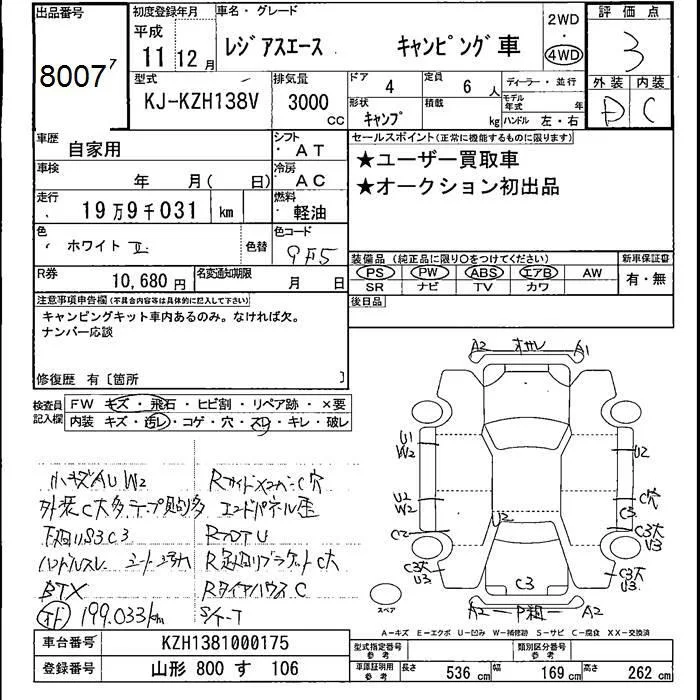 出品番号
8007 7
初度登録年月
平成
11年 12月
車名・グレード
レジアスエース キャンピング車
2WD
・
4WD
評価点
3
外装 内装
D C
型式
KJ-KZH138V
排気量
3000
CC
ドア
4
定員
6 人
ディーラー・並行
形状
キャンプ
積載
kg
モデル年式
年
ハンドル 左・右
車歴
自家用
シフト
・AT
セールスポイント(正常に機能するものに限ります)
★ユーザー買取車
★オークション初出品
車検
年 月( 日)
冷房
・AC
走行
19万9千031 km
燃料
軽油
色
ホワイト II
色替
色コード
装備品 (純正品に限り○をつけてください)
PS PW ABS エアB AW
SR ナビ TV カワ
新車保証書
有・無
R券
10,680 円
名変通知期限
月 日
後日品
注意事項申告欄(不具合内容等は具体的に記入して下さい)
キャンピングキット車内あるのみ。なければ欠。
ナンバー応談
修復歴 有〔箇所 〕
検査員記入欄
FW キズ・飛石・ヒビ割・リペア跡・×要
内装 キズ・汚レ・コゲ・穴・スレ・キレ・破レ
A2 オサレ A1
U1
W2
U2
U2
W2
U2
C穴
C3
C2
C3大
U3
C3大
U3
C3大
U3
C3
A2 A2
スペア
小キズAU W2
外装C大多テープ貼多
下廻りS3C3
ハンドルスレ
BTX
199.033km
エンドパネル歪
C大
RタイヤハウスC
S/T-T
A-キズ E-エクボ U-凹み W-補修跡 S-サビ C-腐食 XX-交換済
車台番号
KZH1381000175
登録番号
山形 800 す 106
型式指定番号
参考
類別区分番号
参考
車庫証明用
参考
長さ 536 cm
幅 169 cm
高さ 262 cm